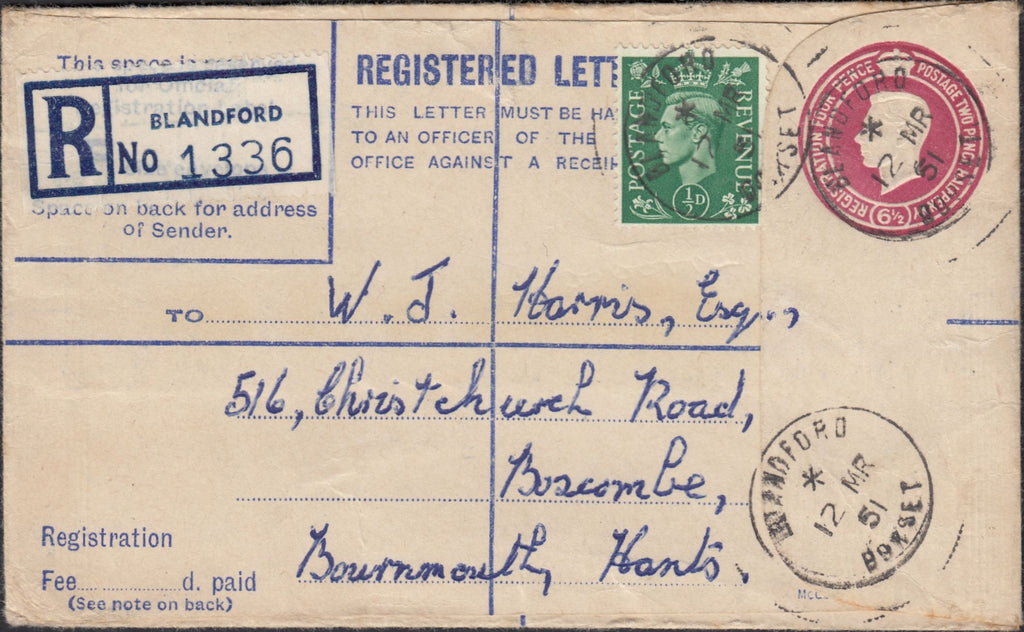 This space is reserved
R
BLANDFORD
No 1336
Space on back for address
of Sender.
REGISTERED LETT
THIS LETTER MUST BE HA
TO AN OFFICER OF THE
OFFICE AGAINST A RECEIP
POSTAGE
REVENUE
½D
BLANDFORD
*
12 MR
DORSET
REGISTRATION FOUR PENCE
POSTAGE TWO PENCE
6½
BLANDFORD
*
12 MR
51
DORSET
TO W. J. Harris, Esq.,
516, Christchurch Road,
Boscombe,
Bournemouth, Hants.
Registration
Fee d. paid
(See note on back)
BLANDFORD
*
12 MR
51
DORSET